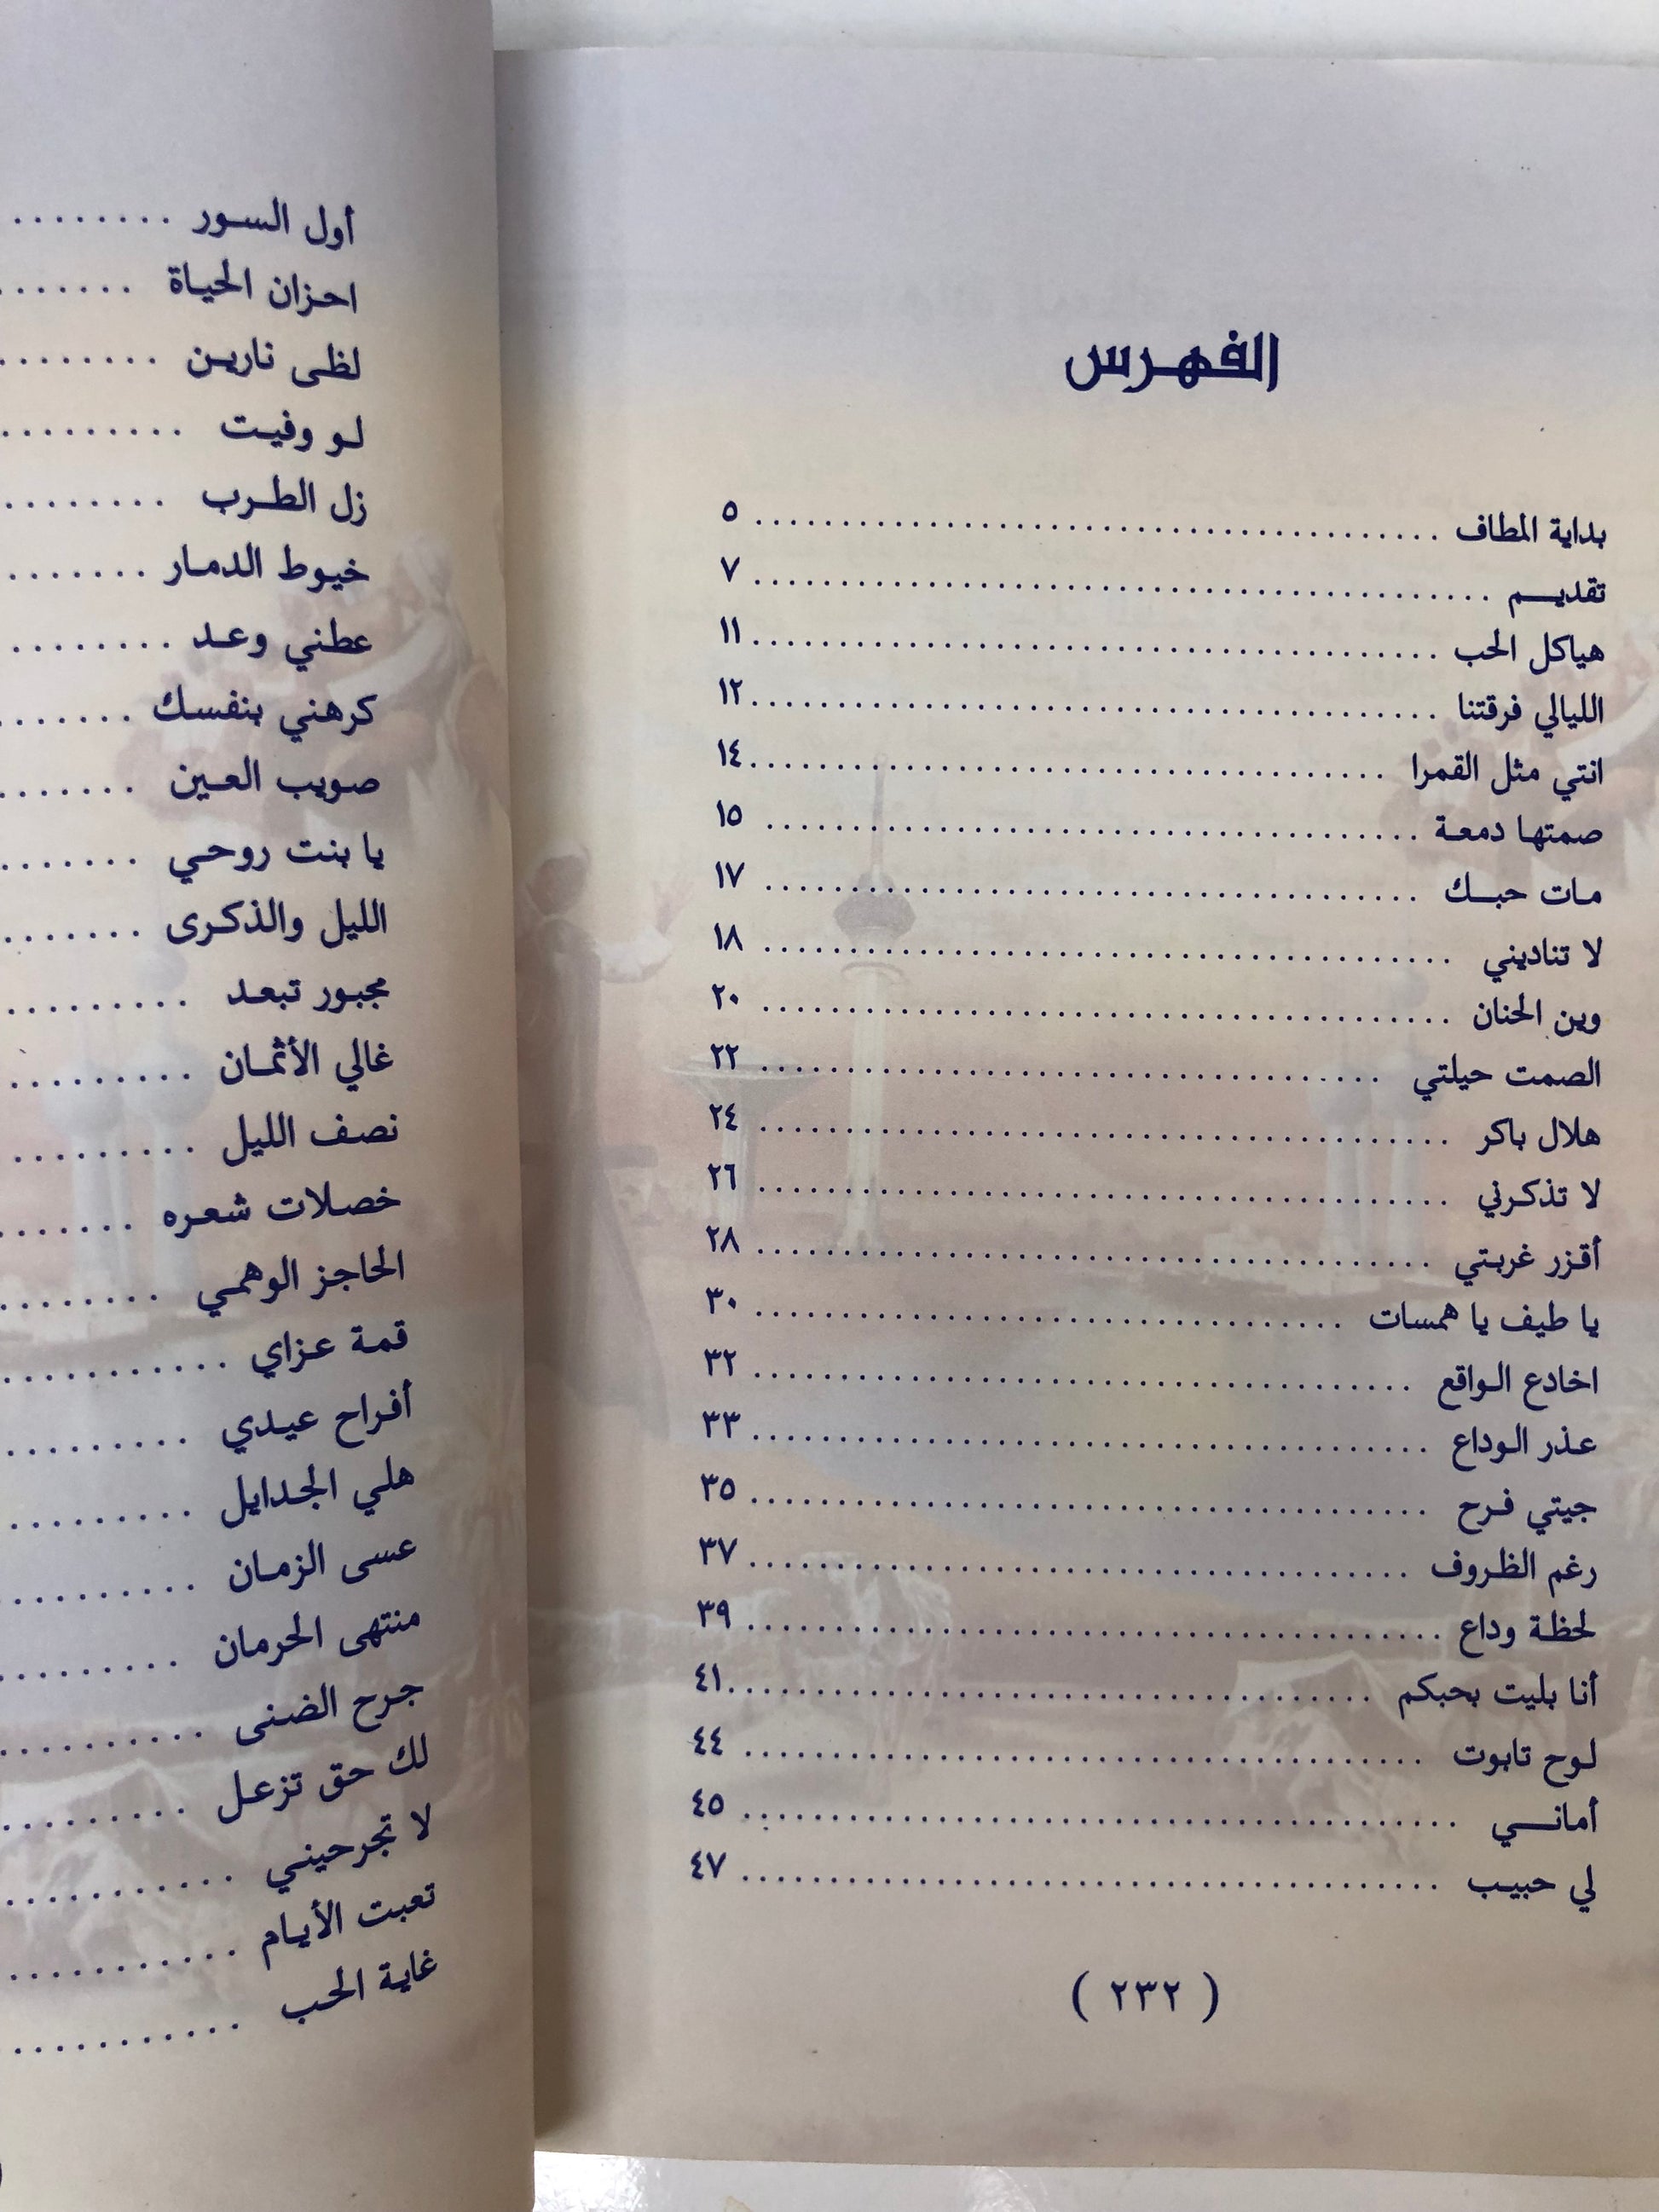 الفهرس
بداية المطاف ........................................ ٥
تقديـــم ........................................ ٧
هياكل الحب ........................................ ١١
الليالي فرقتنا ........................................ ١٢
انتي مثل القمرا ........................................ ١٤
صمتها دمعة ........................................ ١٥
مات حبك ........................................ ١٧
لا تناديني ........................................ ١٨
وين الحنان ........................................ ٢٠
الصمت حيلتي ........................................ ٢٢
هلال باكر ........................................ ٢٤
لا تذكرني ........................................ ٢٦
أقزر غربتي ........................................ ٢٨
يا طيف يا همسات ........................................ ٣٠
اخادع الواقع ........................................ ٣٢
عذر الوداع ........................................ ٣٣
جيتي فرح ........................................ ٣٥
رغم الظروف ........................................ ٣٧
لحظة وداع ........................................ ٣٩
أنا بليت بحبكم ........................................ ٤١
لوح تابوت ........................................ ٤٤
أمانــي ........................................ ٤٥
لي حبيب ........................................ ٤٧
( ٢٣٢ )
أول السور ........
احزان الحياة .......
لظى نارين ........
لو وفيت .........
زل الطرب ........
خيوط الدمار .......
عطني وعد ........
كرهني بنفسك .......
صويب العين .......
يا بنت روحي .......
الليل والذكرى .......
مجبور تبعد .........
غالي الأثمان .........
نصف الليل .........
خصلات شعره .......
الحاجز الوهمي ........
قمة عزاي ...........
أفراح عيدي .........
هلي الجدايل .........
عسى الزمان .........
منتهى الحرمان .........
جرح الضنى ..........
لك حق تزعل .........
لا تجرحيني ...........
تعبت الأيام ...........
غاية الحب ...........